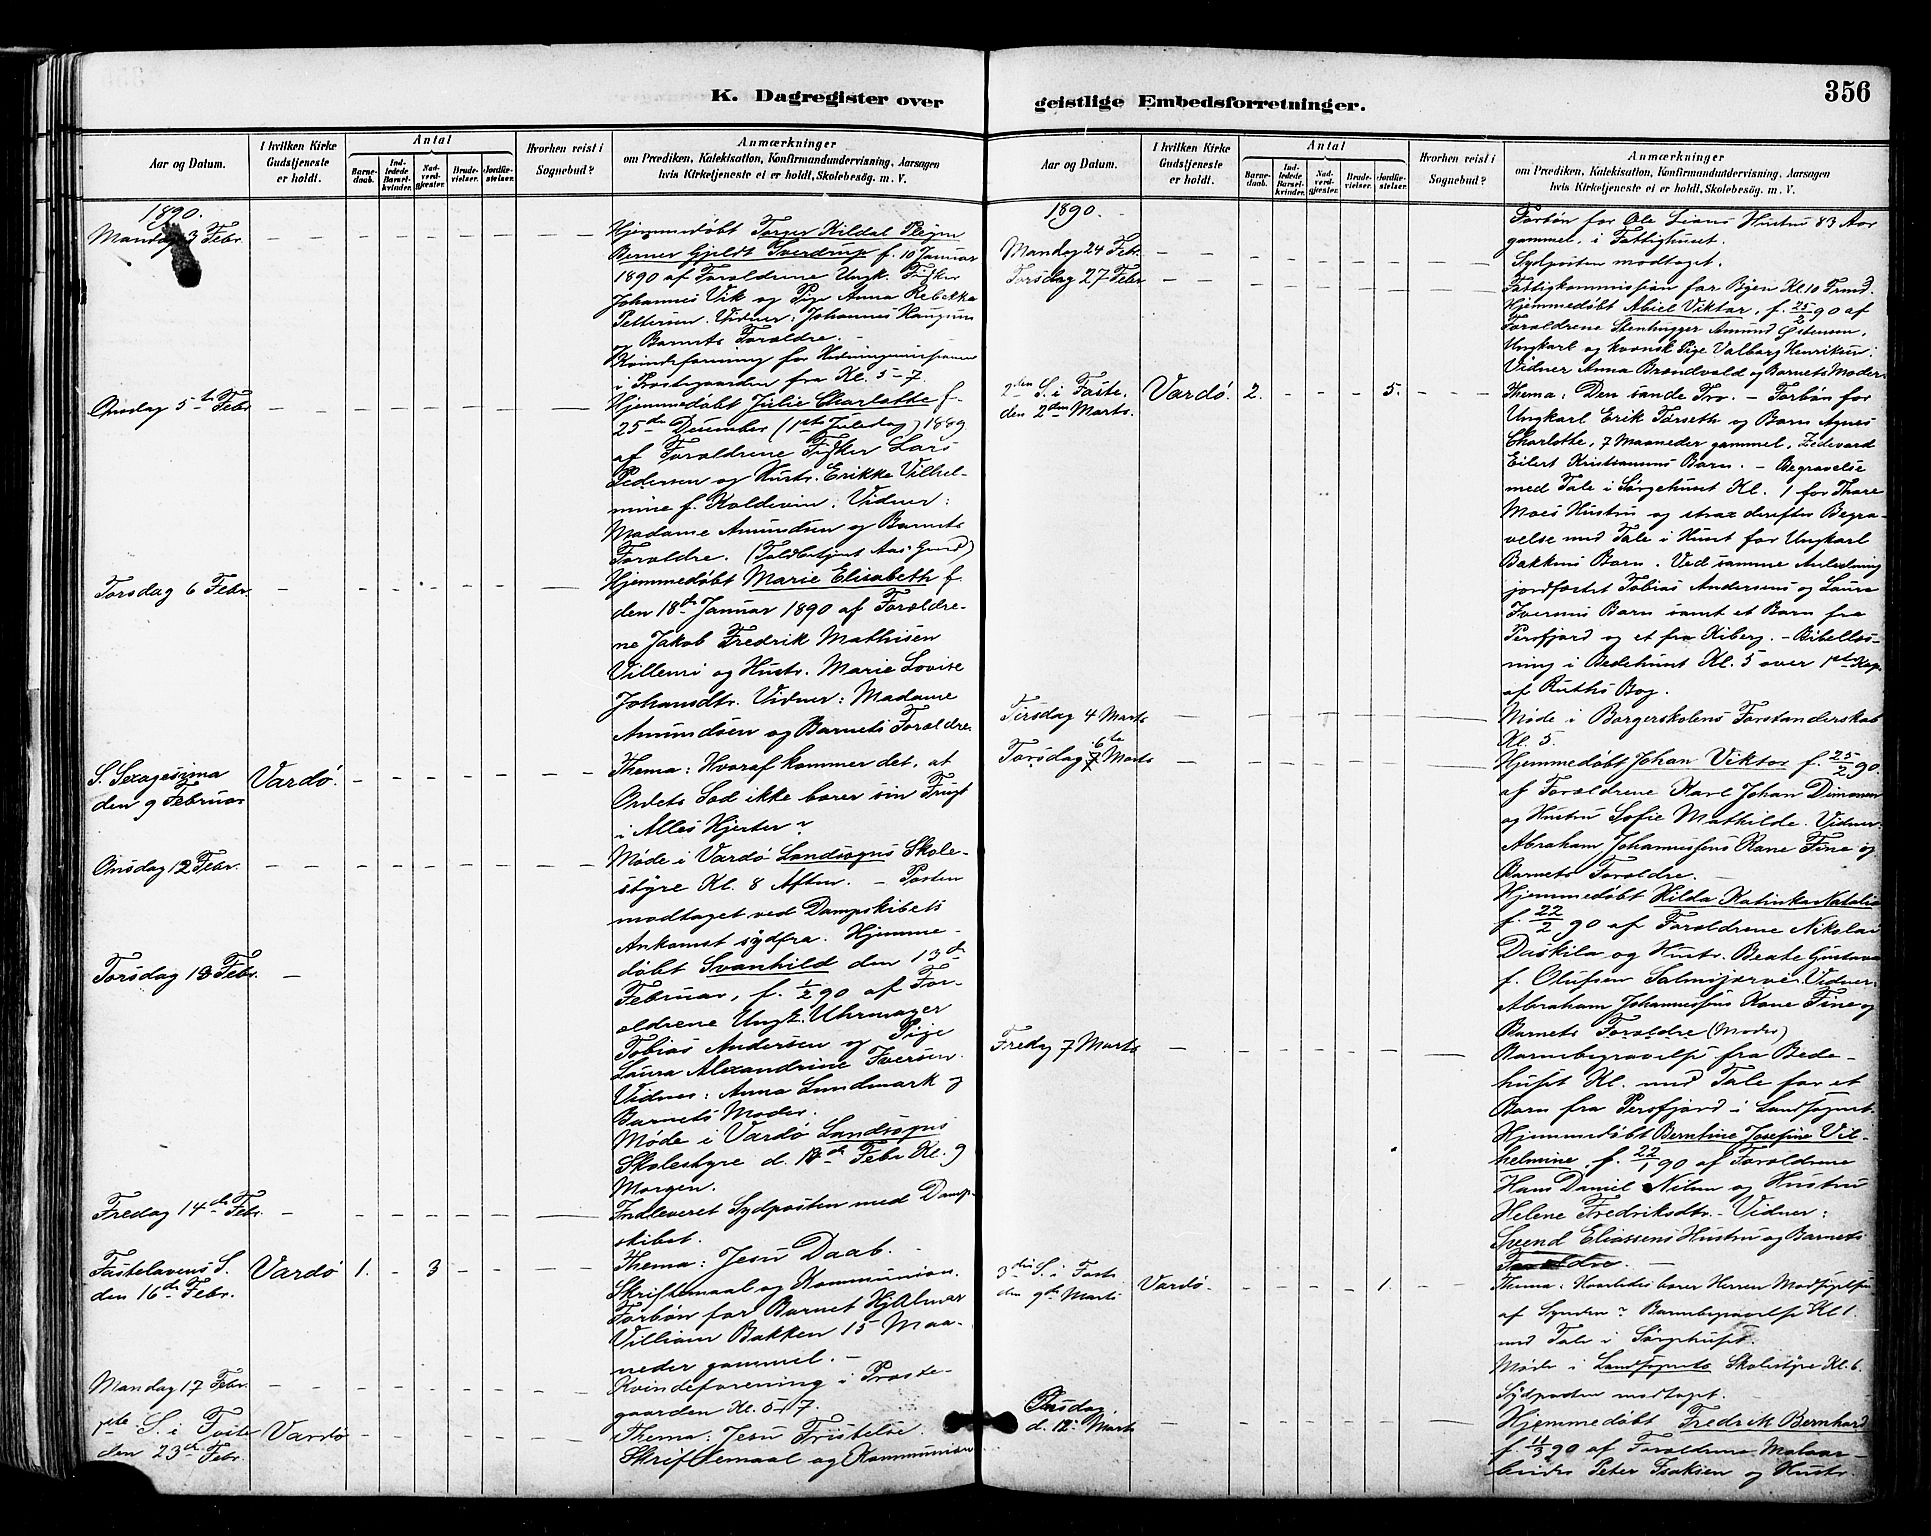 356
K. Dagregister over
geistlige Embedsforretninger.
Aar og Datum.
I hvilken Kirke Gudstjeneste er holdt.
Antal
Barnedaab.
Indledede Barselkvinder.
Nadverdgjester.
Brudevielser.
Jordfæstelser.
Hvorhen reist i Sognebud?
Anmærkninger
om Prædiken, Katekisation, Konfirmandundervisning, Aarsagen
hvis Kirketjeneste ei er holdt, Skolebesøg. m. V.
1890.
Mandag 3 Febr.
Hjemmedøbt Torger Kildal
Berner Gjeldt Sverdrup f. 10 Januar
1890 af Forældrene Ungk. Fisker
Johannes Vik og Pige Anna Rebekka
Pettersen. Vidner: Johannes Haugsun
og Barnets Forældre. -
Kvindeforening for
i Prostegaarden fra Kl. 5-7.
Onsdag 5te Febr.
Hjemmedøbt Julie Charlotte f.
25de December (1ste Juledag) 1889
af Forældrene Fisker Lars
Pedersen og Hustr. Erikke Vilhel-
mine f. Koldevin. Vidner:
Madame Amundsen og Barnets
Forældre. (Toldbetjent Aas-Gaard)
Torsdag 6 Febr.
Hjemmedøbt Marie Elisabeth f.
den 18de Januar 1890 af Forældre-
ne Jakob Fredrik Mathisen
Villemi og Hustr. Marie Lovise
Johansdtr. Vidner: Madame
Amundsen og Barnets Forældre.
S. Sexagesima
den 9 Februar
Vardø.
Thema: Hvoraf kommer det, at
Ordets Sæd ikke bærer sin Frugt
i Alles Hjerter?
Onsdag 12 Febr.
Møde i Vardø Landsogns Skole-
styre Kl. 8 Aften. - Posten
modtaget ved Dampskibets
Ankomst sydfra. Hjemme-
Torsdag 13 Febr.
døbt Svanhild den 13de
Februar, f. 1/2 90 af For-
ældrene Ungk. Uhrmager
Tobias Andersen og Pige
Laura Alexandrine Iversen.
Vidner: Anna Lundmark og
Barnets Moder.
Møde i Vardø Landsogns
Skolestyre d. 14de Febr Kl. 9
Morgen.
Fredag 14de Febr.
Indleveret Sydposten med Damp-
skibet.
Fastelavens S.
den 16de Febr.
Vardø 1. - 3
Thema: Jesu Daab. -
Skriftemaal og Kommunion.
Forbøn for Barnet Hjalmar
Villiam Bakken 15 Maa-
neder gammel. -
Mandag 17 Febr.
Kvindeforening i Proste-
gaarden Kl. 5-7.
1ste S. i Faste
den 23de Febr.
Vardø
Thema: Jesu Fristelse.
Skriftemaal og Kommunion
Aar og Datum.
I hvilken Kirke Gudstjeneste er holdt.
Antal
Barnedaab.
Indledede Barselkvinder.
Nadverdgjester.
Brudevielser.
Jordfæstelser.
Hvorhen reist i Sognebud?
Anmærkninger
om Prædiken, Katekisation, Konfirmandundervisning, Aarsagen
hvis Kirketjeneste ei er holdt, Skolebesøg. m. V.
1890.
Forbøn for Ole Lians Hustru 83 Aar
gammel, i Fattighuset.
Mandag 24 Feb.
Sydposten modtaget.
Torsdag 27 Febr
Fattigkommission for Byen Kl. 10 Formd.
Hjemmedøbt Abiel Viktor, f. 25/2 90 af
Forældrene Stenhugger Amund Østensen,
Ungkarl og kvænsk Pige Valborg Henriksen:
Vidner Anna Brændvold og Barnets Moder.
2den S. i Faste.
den 2den Marts.
Vardø. 2. 5.
Thema: Den sande Tro. - Forbøn for
Ungkarl Erik Torseth og Barn Agnes
Charlotte, 7 Maaneder gammel,
Eilert Kristiansens Barn. - Begravelse
med Tale i Sørgehuset Kl. 1 for Thore
Moes Hustru og strax derefter Begra-
velse med Tale i Huset for Ungkarl
Bakkens Barn. Ved samme Anledning
jordfæstet Tobias Andersens og Laura
Iversens Barn samt et Barn fra
Persfjord og et fra Kiberg. - Bibellæs-
ning i Bedehuset Kl. 5 over 1ste Kap.
af Ruths Bog.
Tirsdag 4 Marts
Møde i Borgerskolens Forstanderskab
Kl. 5.
Torsdag 6te Marts
Hjemmedøbt Johan Viktor f. 25/2 90.
af Forældrene Karl Johan
og Hustru Sofie Mathilde. Vidner:
Abraham Johannessens Kone Fine og
Barnets Forældre. -
Hjemmedøbt Hilda Katinka Natalia
f. 22/2 90 af Forældrene Nikolai
Daskila og Hustr. Beate Gustava
f. Olufsen Salmijærvi. Vidner:
Abraham Johannessens Kone Fine og
Barnets Forældre (Moder)
Fredag 7 Marts
Barnebegravelse fra Bede-
huset Kl. med Tale for et
Barn fra Persfjord i Landsognet.
Hjemmedøbt Berntine Josefine Vil-
helmine, f. 22/1 90 af Forældrene
Hans Daniel Nilsen og Hustru
Helene Fredriksdtr. - Vidner:
Svend Eliassens Hustru og Barnets
Forældre. -
3die S. i Faste
den 9de Marts
Vardø. 1.
Thema: Hvorledes bærer Herren Modsigelse
af Synden? Barnebegravelse Kl 1.
med Tale i Sørgehuset.
Møde i Landsognets Skolestyre Kl. 6.
Sydposten modtaget.
Onsdag
d. 12. Marts
Hjemmedøbt Fredrik Bernhard
f. 11/3 90 af Forældrene
Peter Isaksen og Hustr.